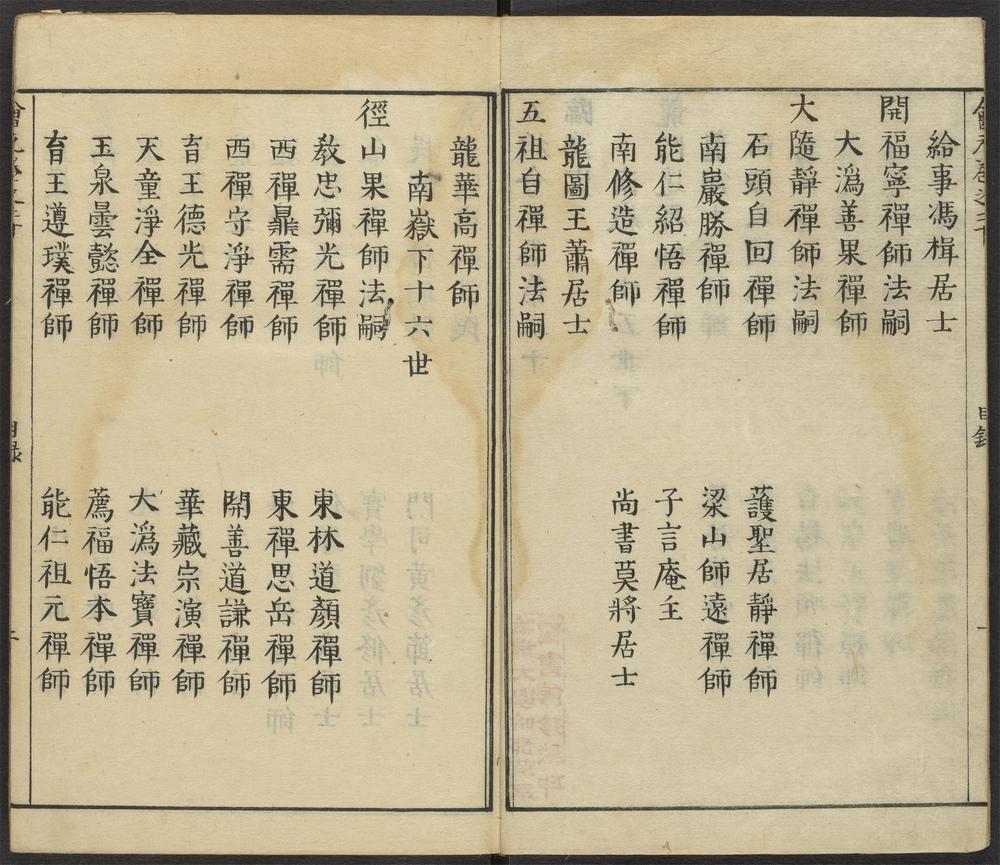 給事馮楫居士
開福寧禪師法嗣
大潙善果禪師
大隨靜禪師法嗣
石頭自回禪師　護聖居靜禪師
南巖勝禪師　梁山師遠禪師
能仁紹悟禪師　子言庵主
南修造禪師　尚書莫將居士
龍圖王蕭居士
五祖自禪師法嗣
龍華高禪師
南嶽下十六世
徑山果禪師法嗣
教忠彌光禪師　東林道顏禪師
西禪鼎需禪師　東禪思岳禪師
西禪守淨禪師　開善道謙禪師
育王德光禪師　華藏宗演禪師
天童淨全禪師　大潙法寶禪師
玉泉曇懿禪師　薦福悟本禪師
育王遵璞禪師　能仁祖元禪師
目錄